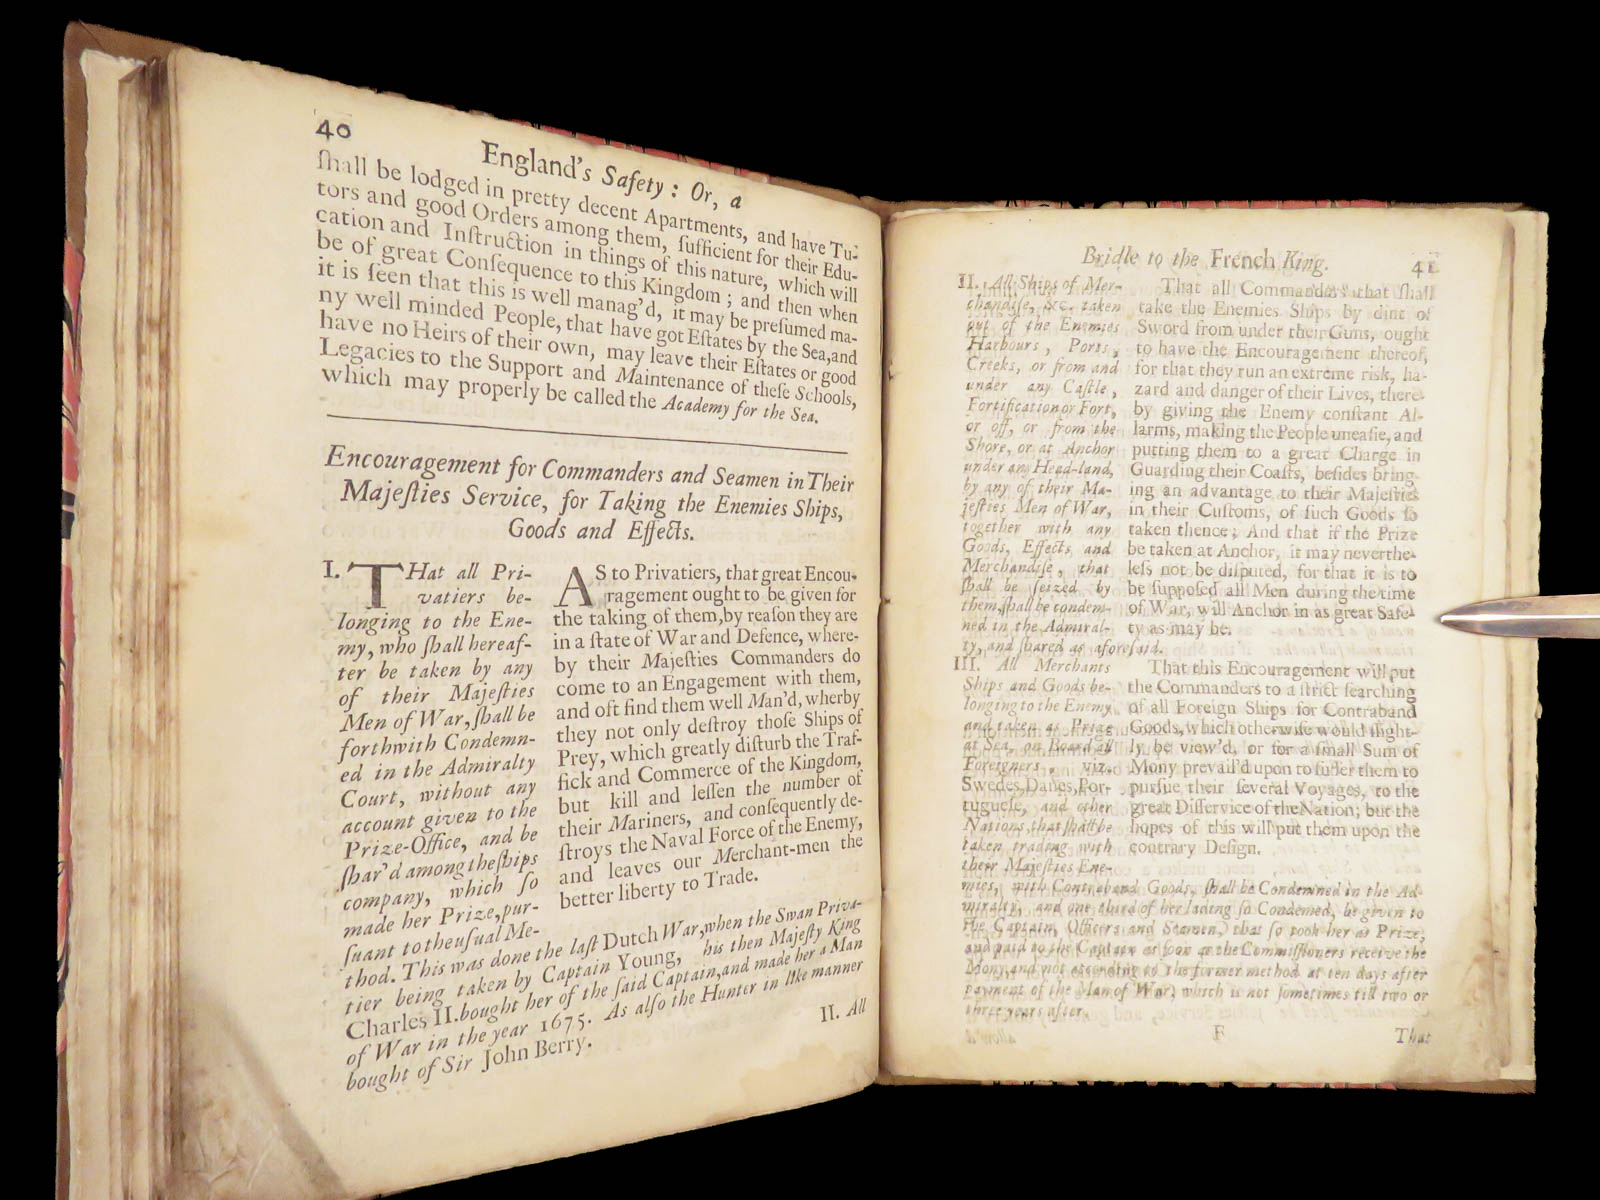 40
England's Safety : Or, a
ſhall be lodged in pretty decent Apartments, and have Tu-
tors and good Orders among them, ſufficient for their Edu-
cation and Inſtruction in things of this nature, which will
be of great Conſequence to this Kingdom ; and then when
it is ſeen that this is well manag'd, it may be preſumed ma-
ny well minded People, that have got Eſtates by the Sea, and
have no Heirs of their own, may leave their Eſtates or good
Legacies to the Support and Maintenance of theſe Schools,
which may properly be called the Academy for the Sea.
Encouragement for Commanders and Seamen in Their
Majeſties Service, for Taking the Enemies Ships,
Goods and Effects.
I. THat all Pri-
vatiers be-
longing to the Ene-
my, who ſhall hereaf-
ter be taken by any
of their Majeſties
Men of War, ſhall be
forthwith Condemn-
ed in the Admiralty
Court, without any
account given to the
Prize-Office, and be
ſhar'd among the ſhips
company, which ſo
made her Prize, pur-
ſuant to the uſual Me-
thod. This was done the laſt Dutch War, when the Swan Priva-
tier being taken by Captain Young, his then Majeſty King
Charles II. bought her of the ſaid Captain, and made her a Man
of War in the year 1675. As alſo the Hunter in like manner
bought of Sir John Berry.
AS to Privatiers, that great Encou-
ragement ought to be given for
the taking of them, by reaſon they are
in a ſtate of War and Defence, where-
by their Majeſties Commanders do
come to an Engagement with them,
and oft find them well Man'd, wherby
they not only deſtroy thoſe Ships of
Prey, which greatly diſturb the Traf-
fick and Commerce of the Kingdom,
but kill and leſſen the number of
their Mariners, and conſequently de-
ſtroys the Naval Force of the Enemy,
and leaves our Merchant-men the
better liberty to Trade.
II. All
Bridle to the French King.
41
II. All Ships of Mer-
chandiſe, &c. taken
out of the Enemies
Harbours, Ports,
Creeks, or from and
under any Caſtle,
Fortification or Fort,
or off, or from the
Shore, or at Anchor
under any Head-land,
by any of their Ma-
jeſties Men of War,
together with any
Goods, Effects, and
Merchandiſe, that
ſhall be ſeized by
them, ſhall be condem-
ned in the Admiral-
ty, and ſhared as aforeſaid.
That all Commanders that ſhall
take the Enemies Ships by dint of
Sword from under their Guns, ought
to have the Encouragement thereof,
for that they run an extreme risk, ha-
zard and danger of their Lives, there-
by giving the Enemy conſtant Al-
larms, making the People uneaſie, and
putting them to a great Charge in
Guarding their Coaſts, beſides bring-
ing an advantage to their Majeſties
in their Cuſtoms, of ſuch Goods ſo
taken thence ; And that if the Prize
be taken at Anchor, it may neverthe-
leſs not be diſputed, for that it is to
be ſuppoſed all Men during the time
of War, will Anchor in as great Safe-
ty as may be.
III. All Merchants
Ships and Goods be-
longing to the Enemy
and taken as Prize
at Sea, on Board all
Foreigners, viz.
Swedes, Danes, Por-
tugueſe, and other
Nations, that ſhall be
taken trading with
their Majeſties Ene-
mies, with Contraband Goods, ſhall be Condemned in the Ad-
miralty, and one third of her lading ſo Condemed, be given to
the Captain, Officers and Seamen, that ſo took her as Prize,
and paid to the Captain as ſoon as the Commiſſioners receive the
Mony, and not according to the former method at ten days after
payment of the Man of War, which is not ſometimes till two or
three years after.
That this Encouragement will put
the Commanders to a ſtrict ſearching
of all Foreign Ships for Contraband
Goods, which otherwiſe would ſlight-
ly be view'd, or for a ſmall Sum of
Mony prevail'd upon to ſuffer them to
purſue their ſeveral Voyages, to the
great Diſſervice of the Nation; but the
hopes of this will put them upon the
contrary Deſign.
F
That